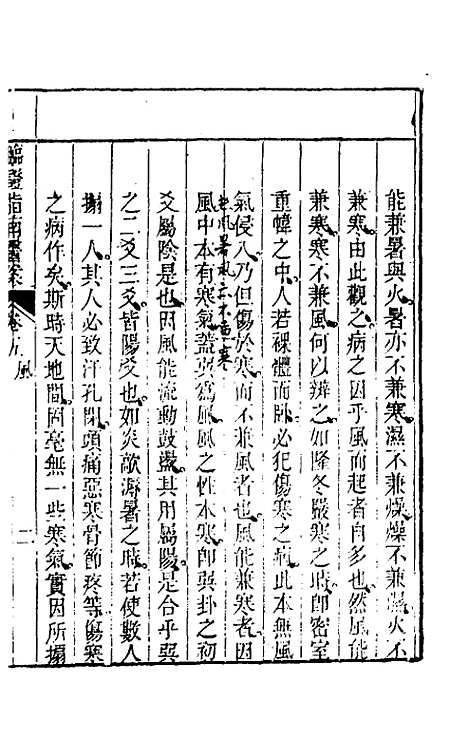 能兼暑與火暑亦不兼寒濕不兼燥燥不兼濕火不
兼寒由此觀之病之因乎風而起者自多也然風能
兼寒寒不兼風何以辨之如隆冬嚴寒之時即密室
重幃之中人若裸體而臥必犯傷寒之病此本無風
氣侵入乃但傷於寒而不兼風者也風能兼寒者因
風中本有寒氣蓋巽為風風之性本寒即巽卦之初
爻屬陰是也因風能流動鼓盪其用屬陽是合乎巽
之二爻三爻皆陽爻也如炎歊溽暑之時若使數人
搧一人其人必致汗孔閉頭痛惡寒骨節疼等傷寒
之病作矣斯時天地間固毫無一些寒氣實因所搧
臨證指南醫案 卷五 風 二